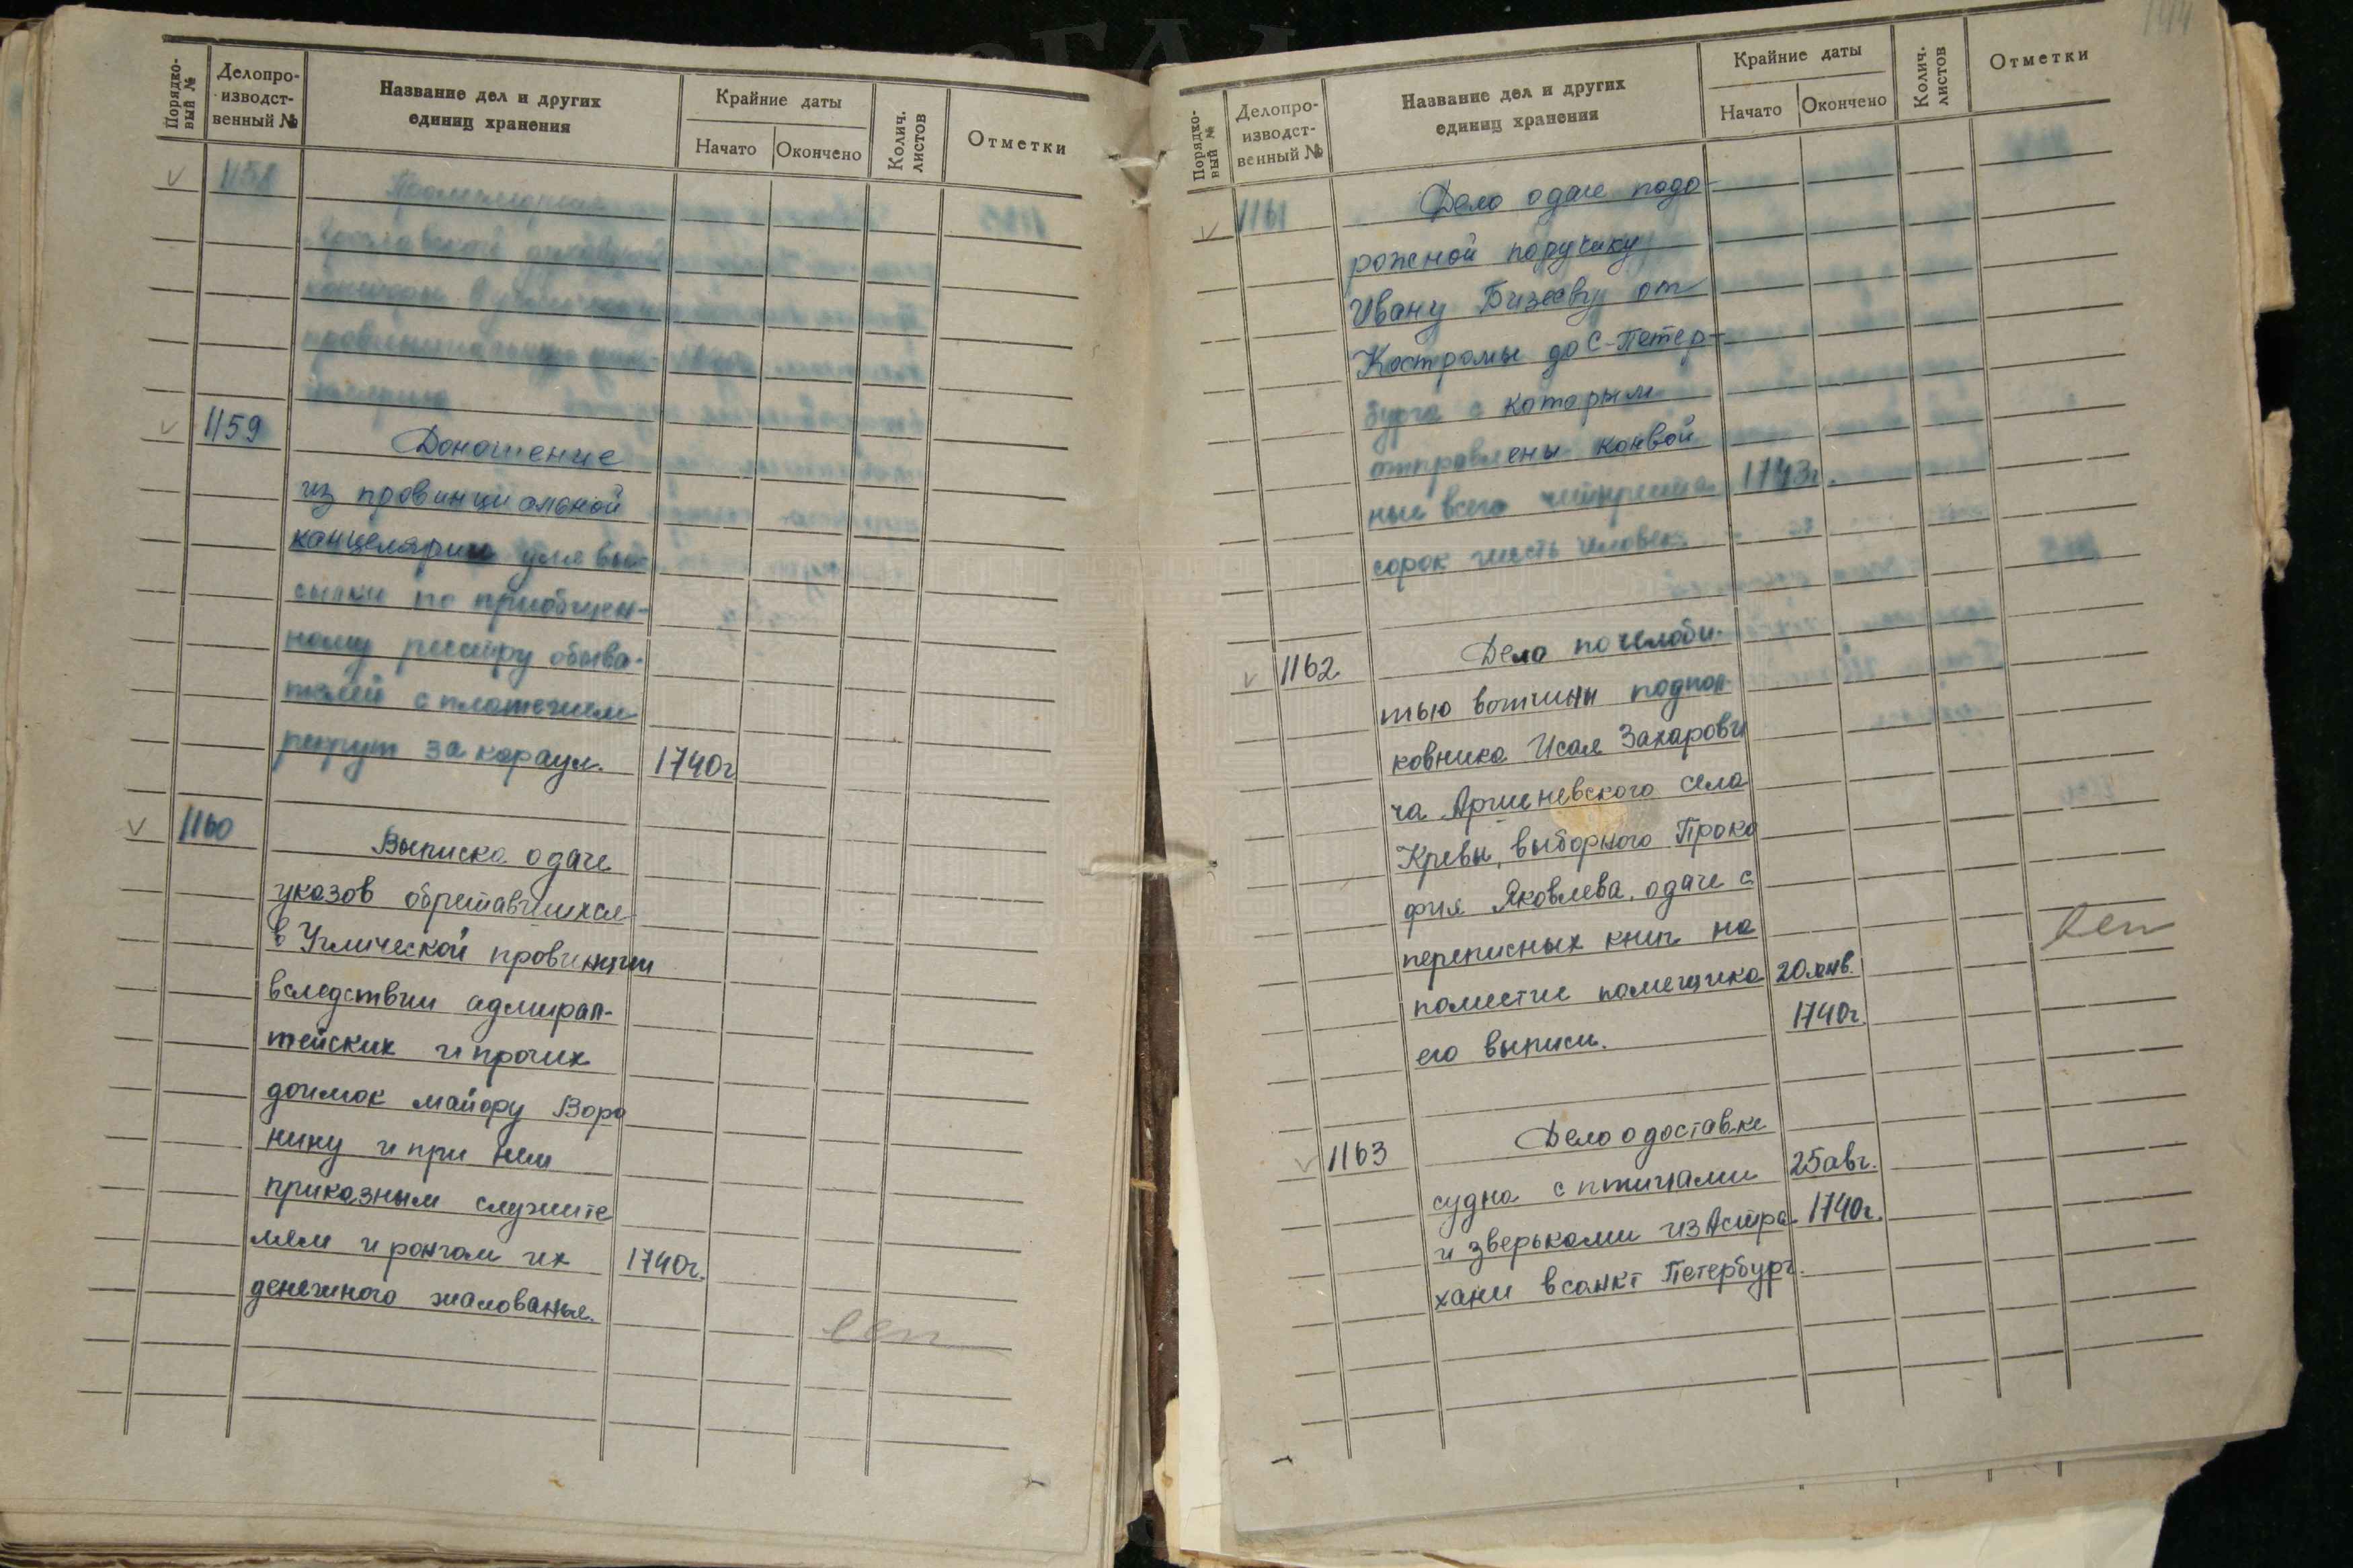 Порядко-
вый №
Делопро-
изводст-
венный №
Название дел и других
единиц хранения
Крайние даты
Начато
Окончено
Колич.
листов
Отметки
1158
Промемория
духовной
1159
Доношение
из провинциальной
канцелярии для вы-
сылки по приобщен-
ному реестру обыва-
телей с платежем
рекрут за караул. 1740г
1160
Выписка о даче
указов обретавшихся
в Углической провинции
вследствии адмирал-
тейских и прочих
доимок майору Воро
нину и при нем
приказным служите
лям и рангом их 1740г.
денежного жалованья.
144
Порядко-
вый №
Делопро-
изводст-
венный №
Название дел и других
единиц хранения
Крайние даты
Начато
Окончено
Колич.
листов
Отметки
1161
Дело о даче подо-
рожной поручику
Ивану Бизееву от
Костромы до С-Петер-
бурга с которым
отправлены конвой
ные всего четыреста 1743г.
сорок шесть человек
1162
Дело по челоби-
тью вотчины подпол-
ковника Исая Захарови
ча Аршеневского села
Кревы, выборного Проко
фия Яковлева, о даче с
переписных книг на
поместие помещика 20 янв.
его выписи. 1740г.
1163
Дело о доставке
судна с птицами 25 авг.
и зверьками из Астра 1740г.
хани в санкт Петербург.